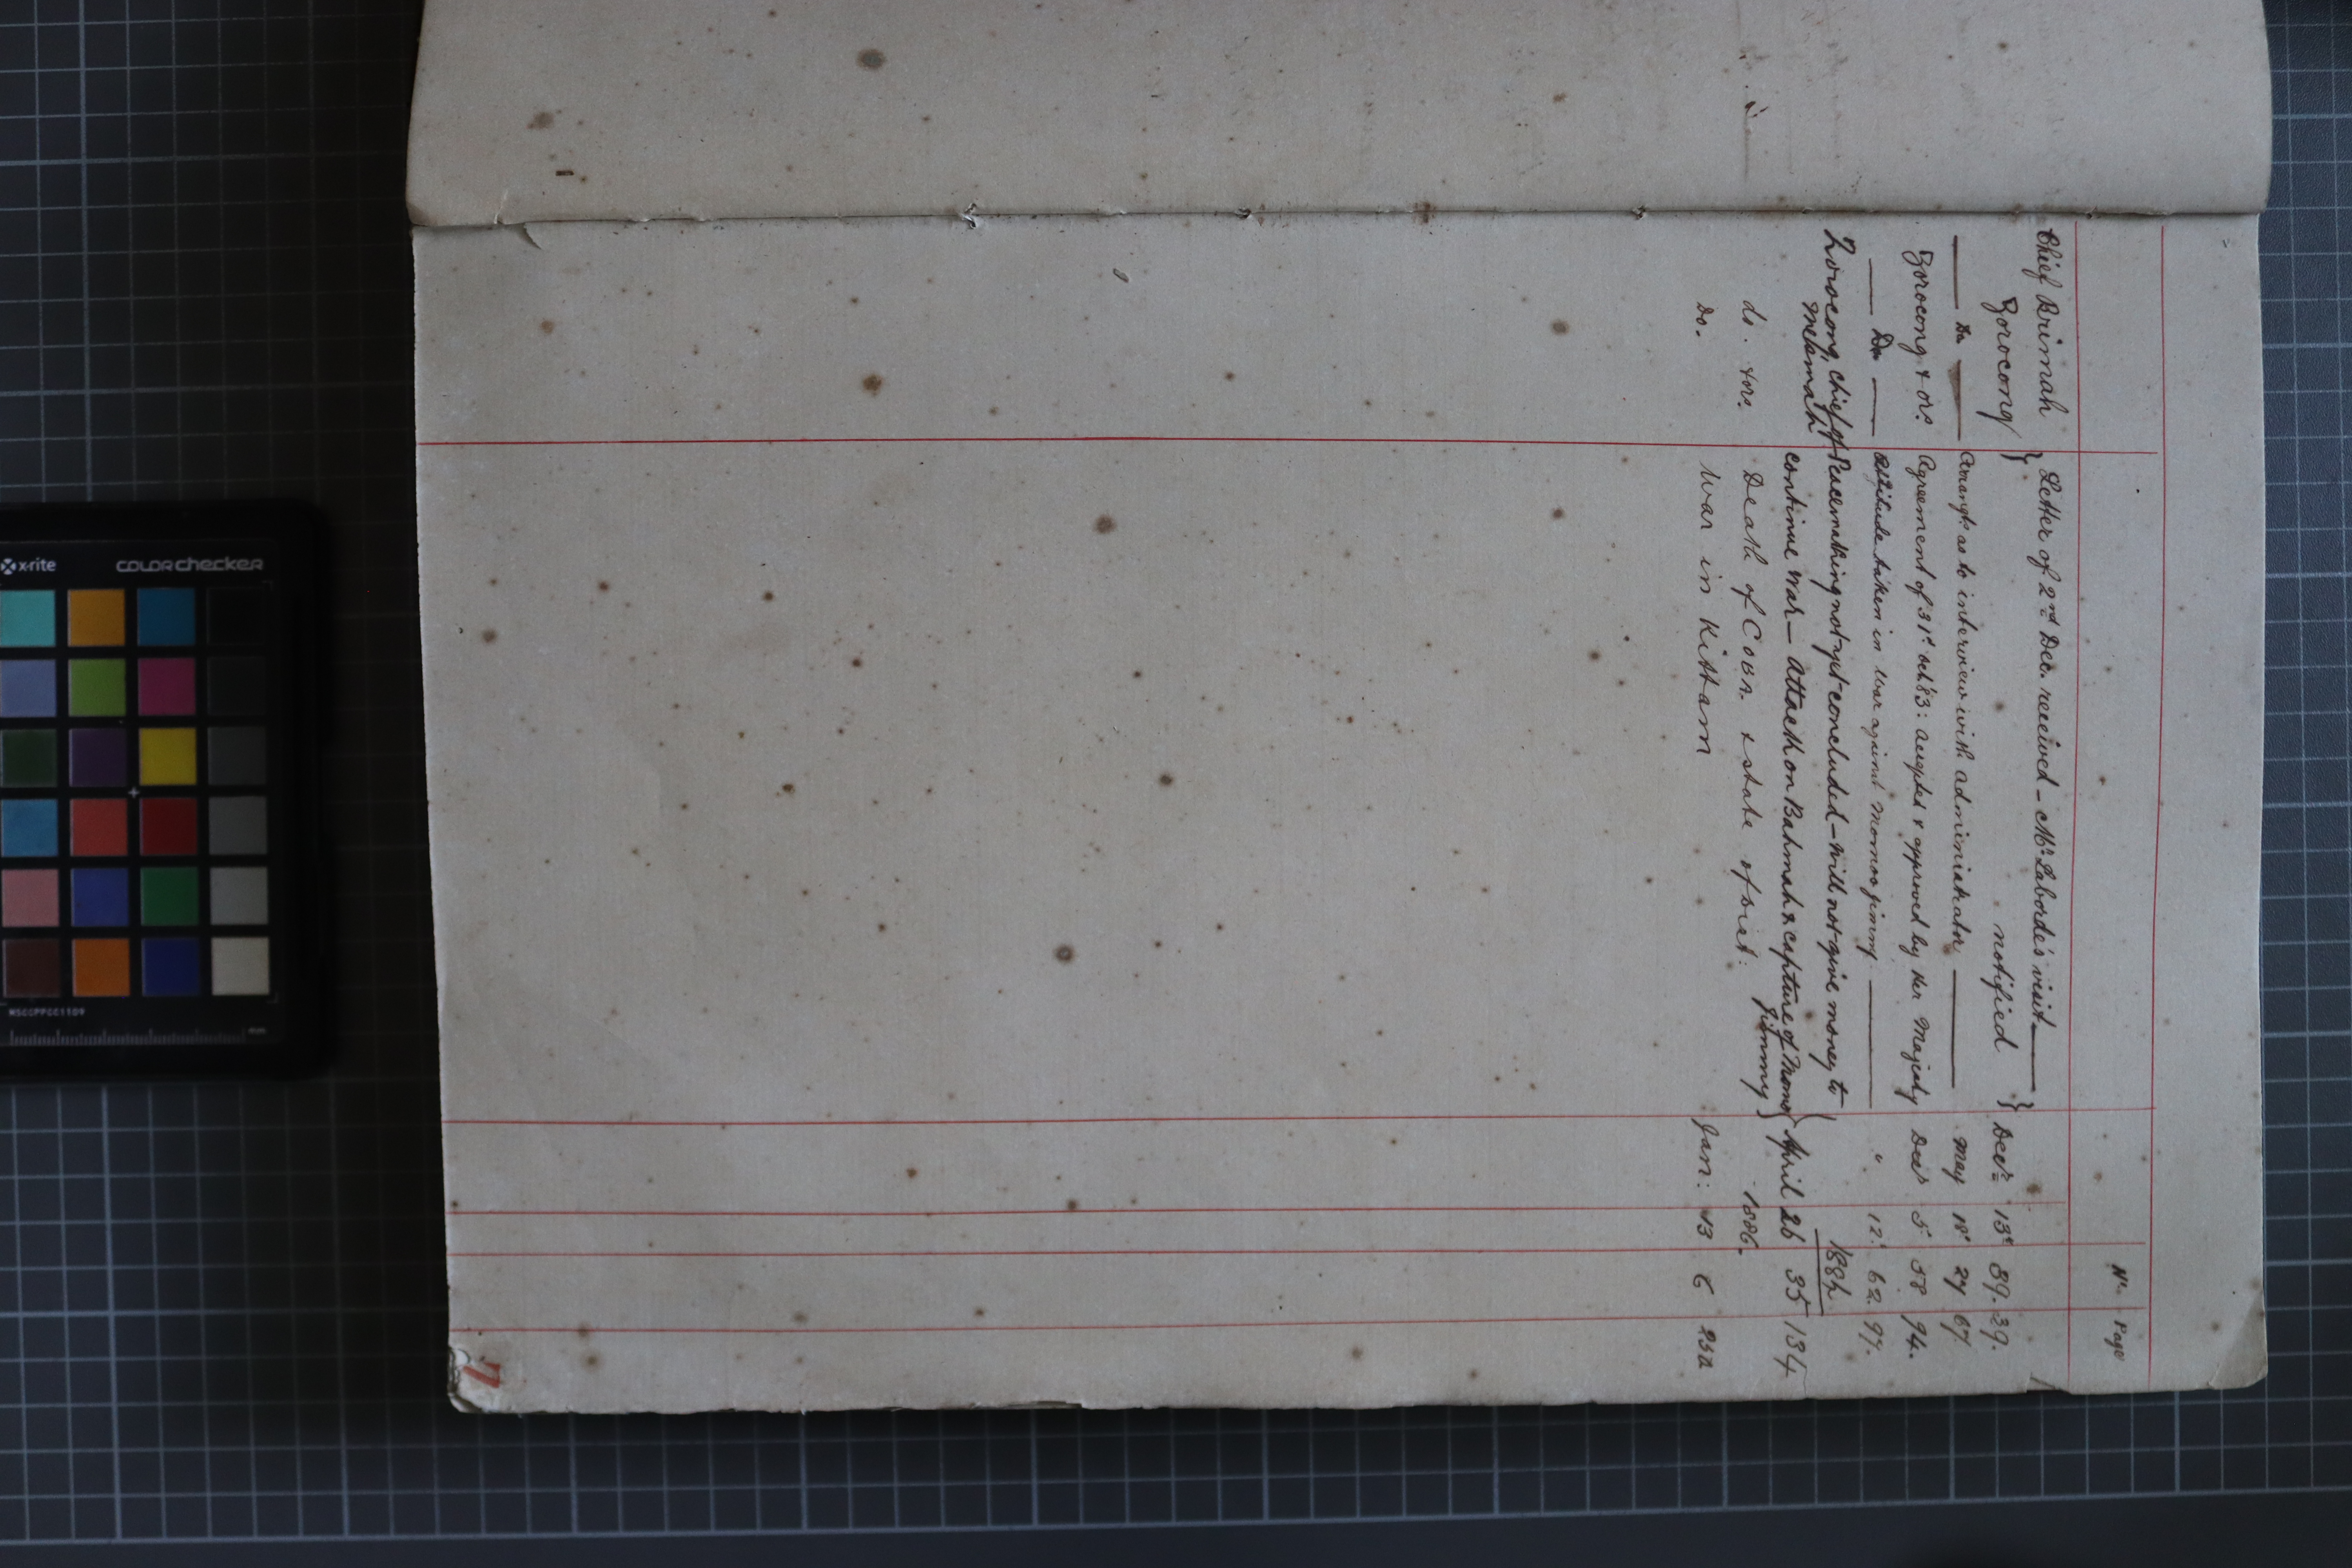 No. Page
Chief Brimah Letter of 2nd Dec. received – Mr Laborde's visit
Zorocong } notified } Decr 13th 39. 39.
Do Arrangts as to interview with Administrator May 18th 27 67
Zorocong & ors. Agreement of 31st Oct 83: accepted & approved by Her Majesty Decr 5th 58 94.
Do Attitude taken in war against Momoo Jimmy " 12th 62. 97.
1884
Zorocong, chief of Peacemaking not yet concluded – will not give money to
Melamah continue war – Attack on Bahmah & capture of Momo } April 26 35 134
Jimmy
do. & ors. Death of Govr. & state of Disct: 1886.
Do. War in Kittam Jan: 13 6 232
x-rite COLORchecker
MSCCPPCC1109